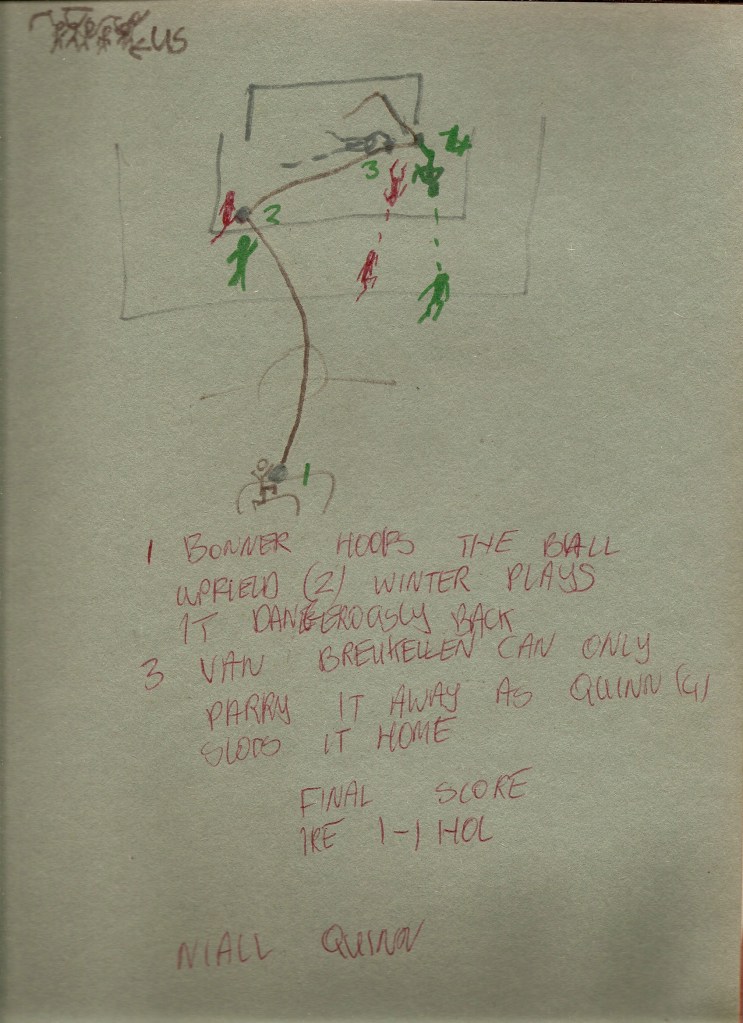 US
2
3
4
1
1 BONNER HOOFS THE BALL
UPFIELD (2) WINTER PLAYS
IT DANGEROUSLY BACK
3 VAN BREUKELLEN CAN ONLY
PARRY IT AWAY AS QUINN (4)
SLOTS IT HOME
FINAL SCORE
IRE 1-1 HOL
NIALL QUINN